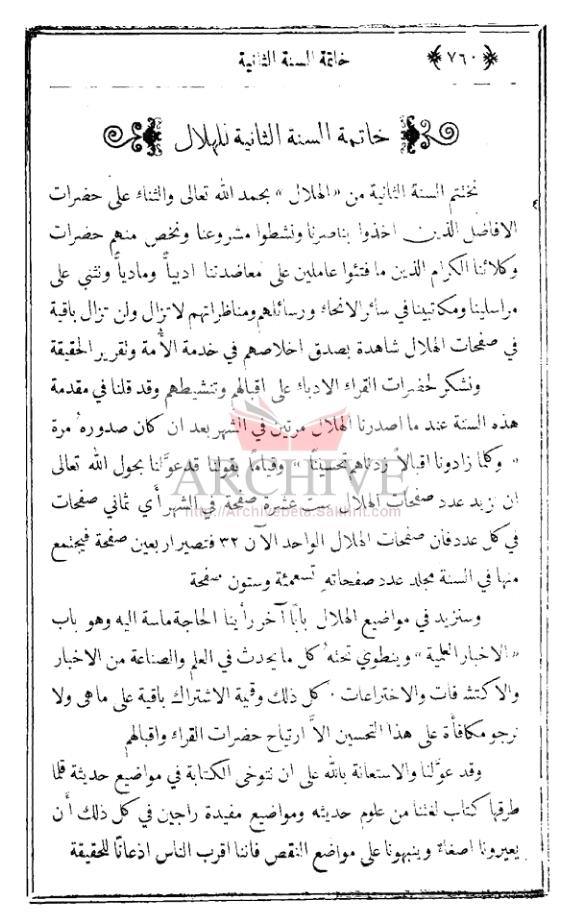 ﴿٧٦٠﴾ خاتمة السنة الثانية
خاتمة السنة الثانية للهلال
نختتم السنة الثانية من «الهلال» بحمد الله تعالى والثناء على حضرات
الافاضل الذين اخذوا بناصرنا ونشطوا مشروعنا ونخص منهم حضرات
وكلائنا الكرام الذين ما فتئوا عاملين على معاضدتنا ادبياً ومادياً ونثني على
مراسلينا ومكاتبينا في سائر الانحاء ورسائلهم ومناظراتهم لا تزال ولن تزال باقية
في صفحات الهلال شاهدة بصدق اخلاصهم في خدمة الأمة وتقرير الحقيقة
ونشكر لحضرات القراء الادباء على اقبالهم وتنشيطهم وقد قلنا في مقدمة
هذه السنة عند ما اصدرنا الهلال مرتين في الشهر بعد ان كان صدوره مرة
«وكلما زادونا اقبالاً زدناهم تحسيناً» وقياماً بقولنا قد عوَّلنا بحول الله تعالى
ان نزيد عدد صفحات الهلال ست عشرة صفحة في الشهر أي ثماني صفحات
في كل عدد فان صفحات الهلال الواحد الآن ٣٢ فتصير اربعين صفحة فيجتمع
منها في السنة مجلد عدد صفحاته تسعمئة وستون صفحة
وسنزيد في مواضيع الهلال باباً آخر رأينا الحاجة ماسة اليه وهو باب
«الاخبار العلمية» وينطوي تحته كل ما يحدث في العلم والصناعة من الاخبار
والاكتشافات والاختراعات . كل ذلك وقيمة الاشتراك باقية على ما هي ولا
نرجو مكافأة على هذا التحسين الاَّ ارتياح حضرات القراء واقبالهم
وقد عوَّلنا والاستعانة بالله على ان نتوخى الكتابة في مواضيع حديثة قلما
طرقها كتاب لغتنا من علوم حديثه ومواضيع مفيدة راجين في كل ذلك أن
يعيرونا اصغاءً وينبهونا على مواضع النقص فاننا اقرب الناس اذعاناً للحقيقة
ARCHIVE
http://Archivebeta.Sakhrit.com